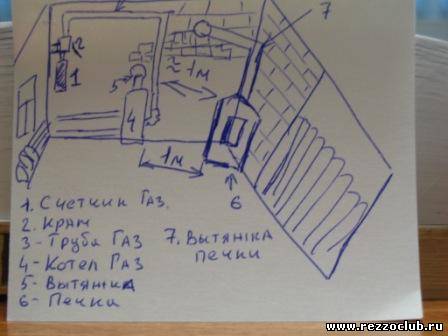 7
2
≈ 1м
5
1
4
1м
6
1. Счетчик Газ.
2. Кран
3 - Труба Газ
4 - Котел Газ
5 - Вытяжка
6 - Печка
7. Вытяжка
печки
www.rezzoclub.ru